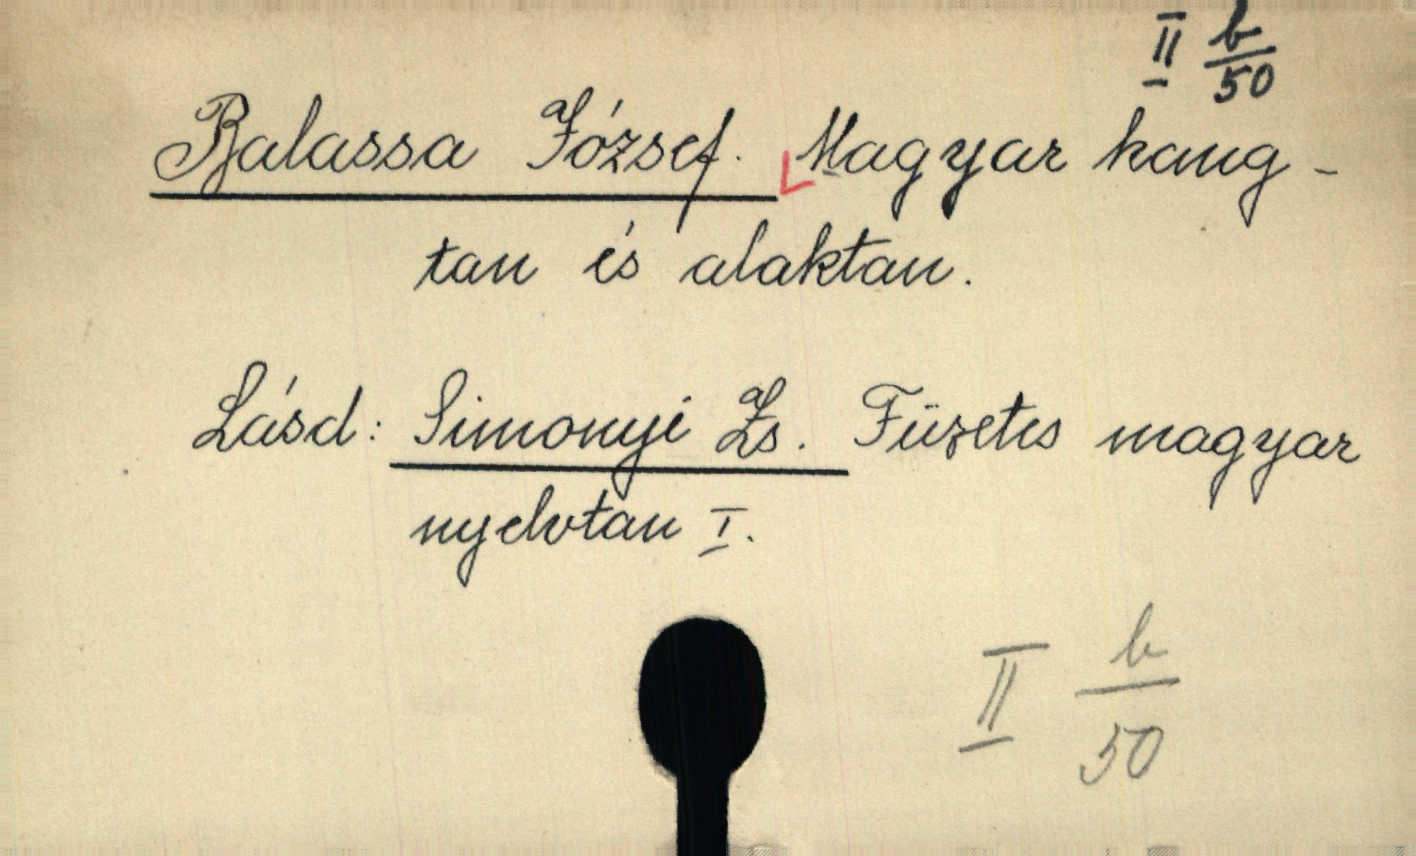 II b/50
Balassa József. Magyar hang-
tan és alaktan.
Lásd: Simonyi Zs. Füzetes magyar
nyelvtan I.
II b/50